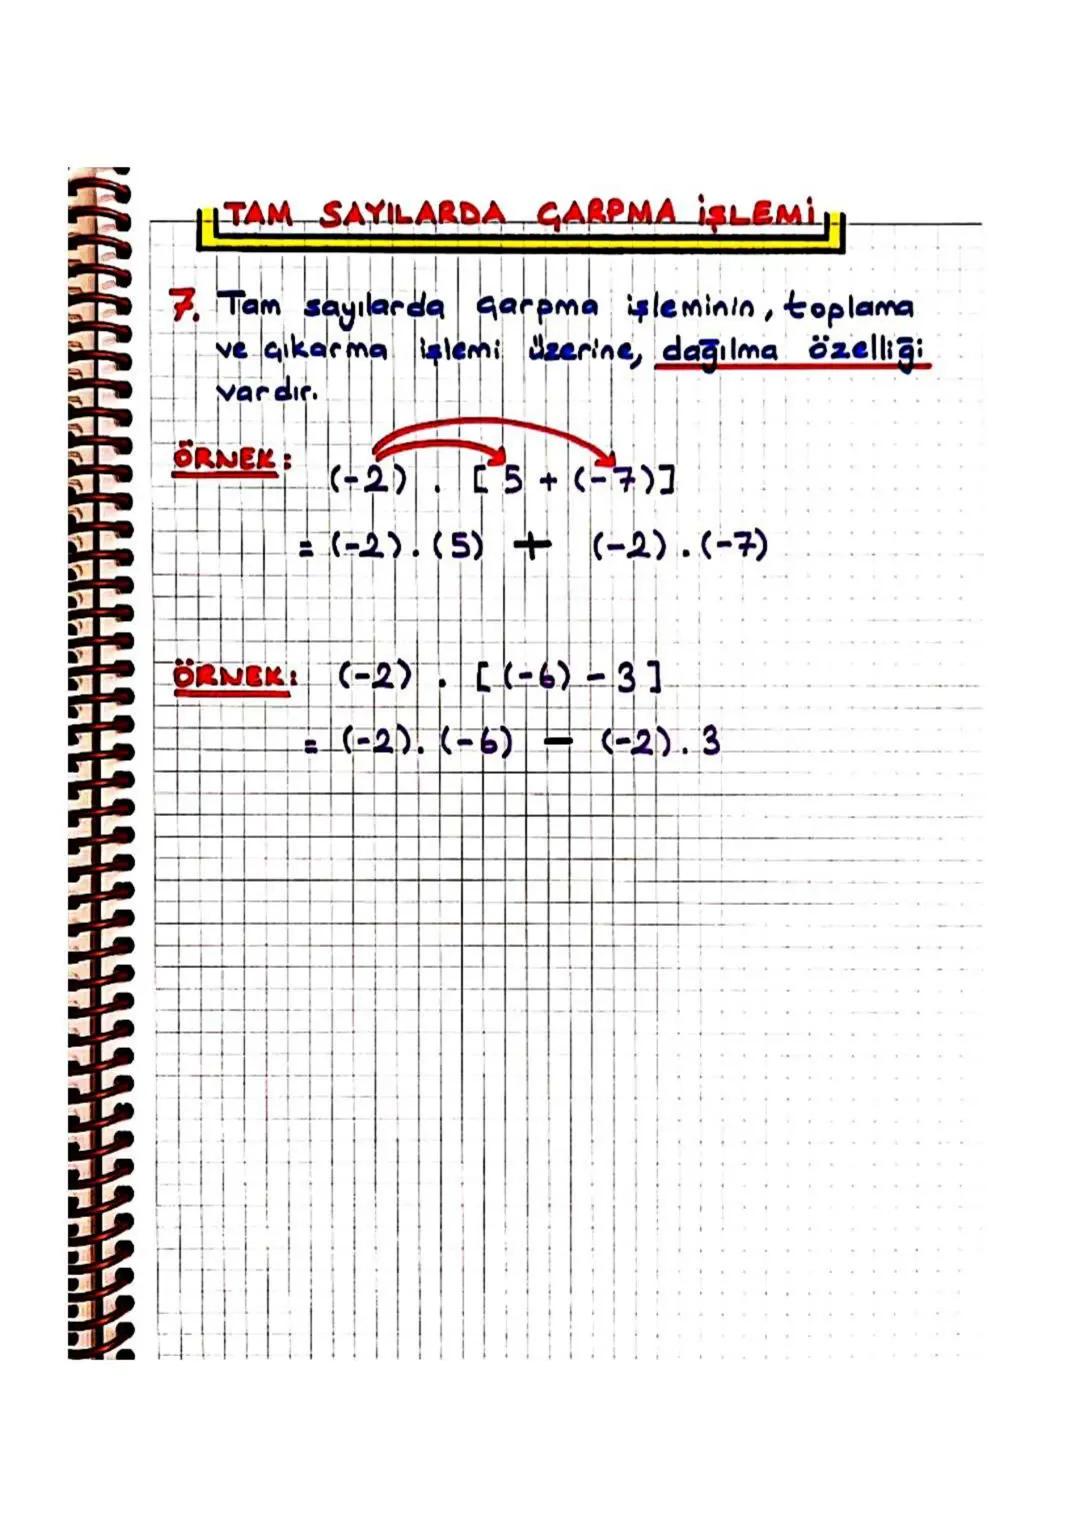 TAM SAYILARDA ÇARPMA İŞLEMİ
7. Tam sayılarda çarpma işleminin, toplama
ve çıkarma işlemi üzerine, dağılma özelliği
vardır.
ÖRNEK: (-2) . [5 + (-7)]
= (-2) . (5) + (-2) . (-7)
ÖRNEK: (-2) . [(-6) - 3]
= (-2) . (-6) - (-2) . 3